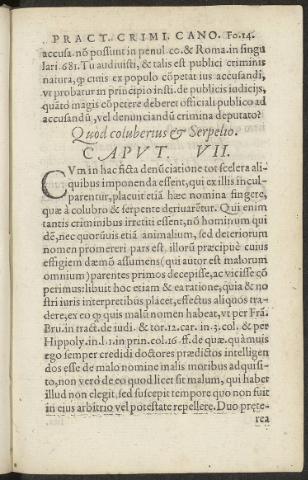 PRACT. CRIMI. CANO. Fo.14.
accusa. nō possunt in penul. co. & Roma. in singu
lari. 681. Tu audiuisti, & talis est publici criminis
natura, ꝙ cuiuis ex populo cōpetat ius accusandi,
vt probatur in principio insti. de publicis iudicijs,
quāto magis cōpetere deberet officiali publico ad
accusandū, vel denunciandū crimina deputato?
Quod coluberius & Serpelio.
CAPVT. VII.
CVm in hac ficta denūciatione tot scelera ali-
quibus imponenda essent, qui ex illis incul-
parentur, placuit etiā hæc nomina fingere,
quæ à colubro & serpente deriuarētur. Qui enim
tantis criminibus irretiti essent, nō hominum qui
dē, nec quoruīuis etiā animalium, sed deteriorum
nomen promereri pars est. illorū præcipuè cuius
effigiem dæmō assumens (qui autor est malorum
omnium) parentes primos decepisse, ac vicisse cō
perimus: libuit hoc etiam & ea ratione, quia & no
stri iuris interpretibus placet, effectus aliquos tra-
dere, ex eo ꝙ quis malū nomen habeat, vt per Frā.
Bru. in tract. de iudi. & tor. 12. car. in 3. col. & per
Hippoly. in l. 1. in prin. col. 16. ff. de quæ. quā muis
ego semper credidi doctores prædictos intelligen
dos esse de malo nomine malis moribus adquisi-
to, non verò de eo quod licet sit malum, qui habet
illud non elegit, sed suscepit tempore quo non fuit
in eius arbitrio vel potestate repellere. Duo præte-
rea